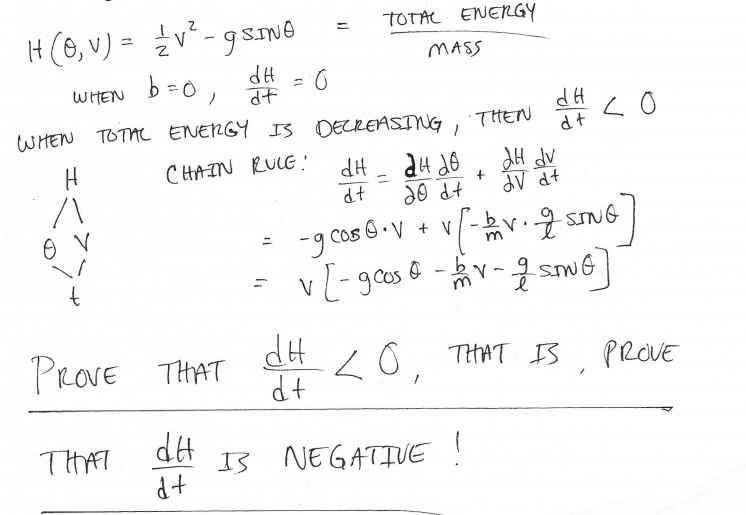 H(θ,v) = 1/2 v² - g SINθ = TOTAL ENERGY / MASS
WHEN b=0, dH/dt = 0
WHEN TOTAL ENERGY IS DECREASING, THEN dH/dt < 0
H CHAIN RULE: dH/dt = ∂H/∂θ ∂θ/dt + ∂H/∂V dV/dt
θ V = -g cosθ·V + V[-b/m v · g/ℓ SINθ]
t = V[-g cosθ - b/m v - g/ℓ SINθ]
PROVE THAT dH/dt < 0, THAT IS, PROVE
THAT dH/dt IS NEGATIVE!